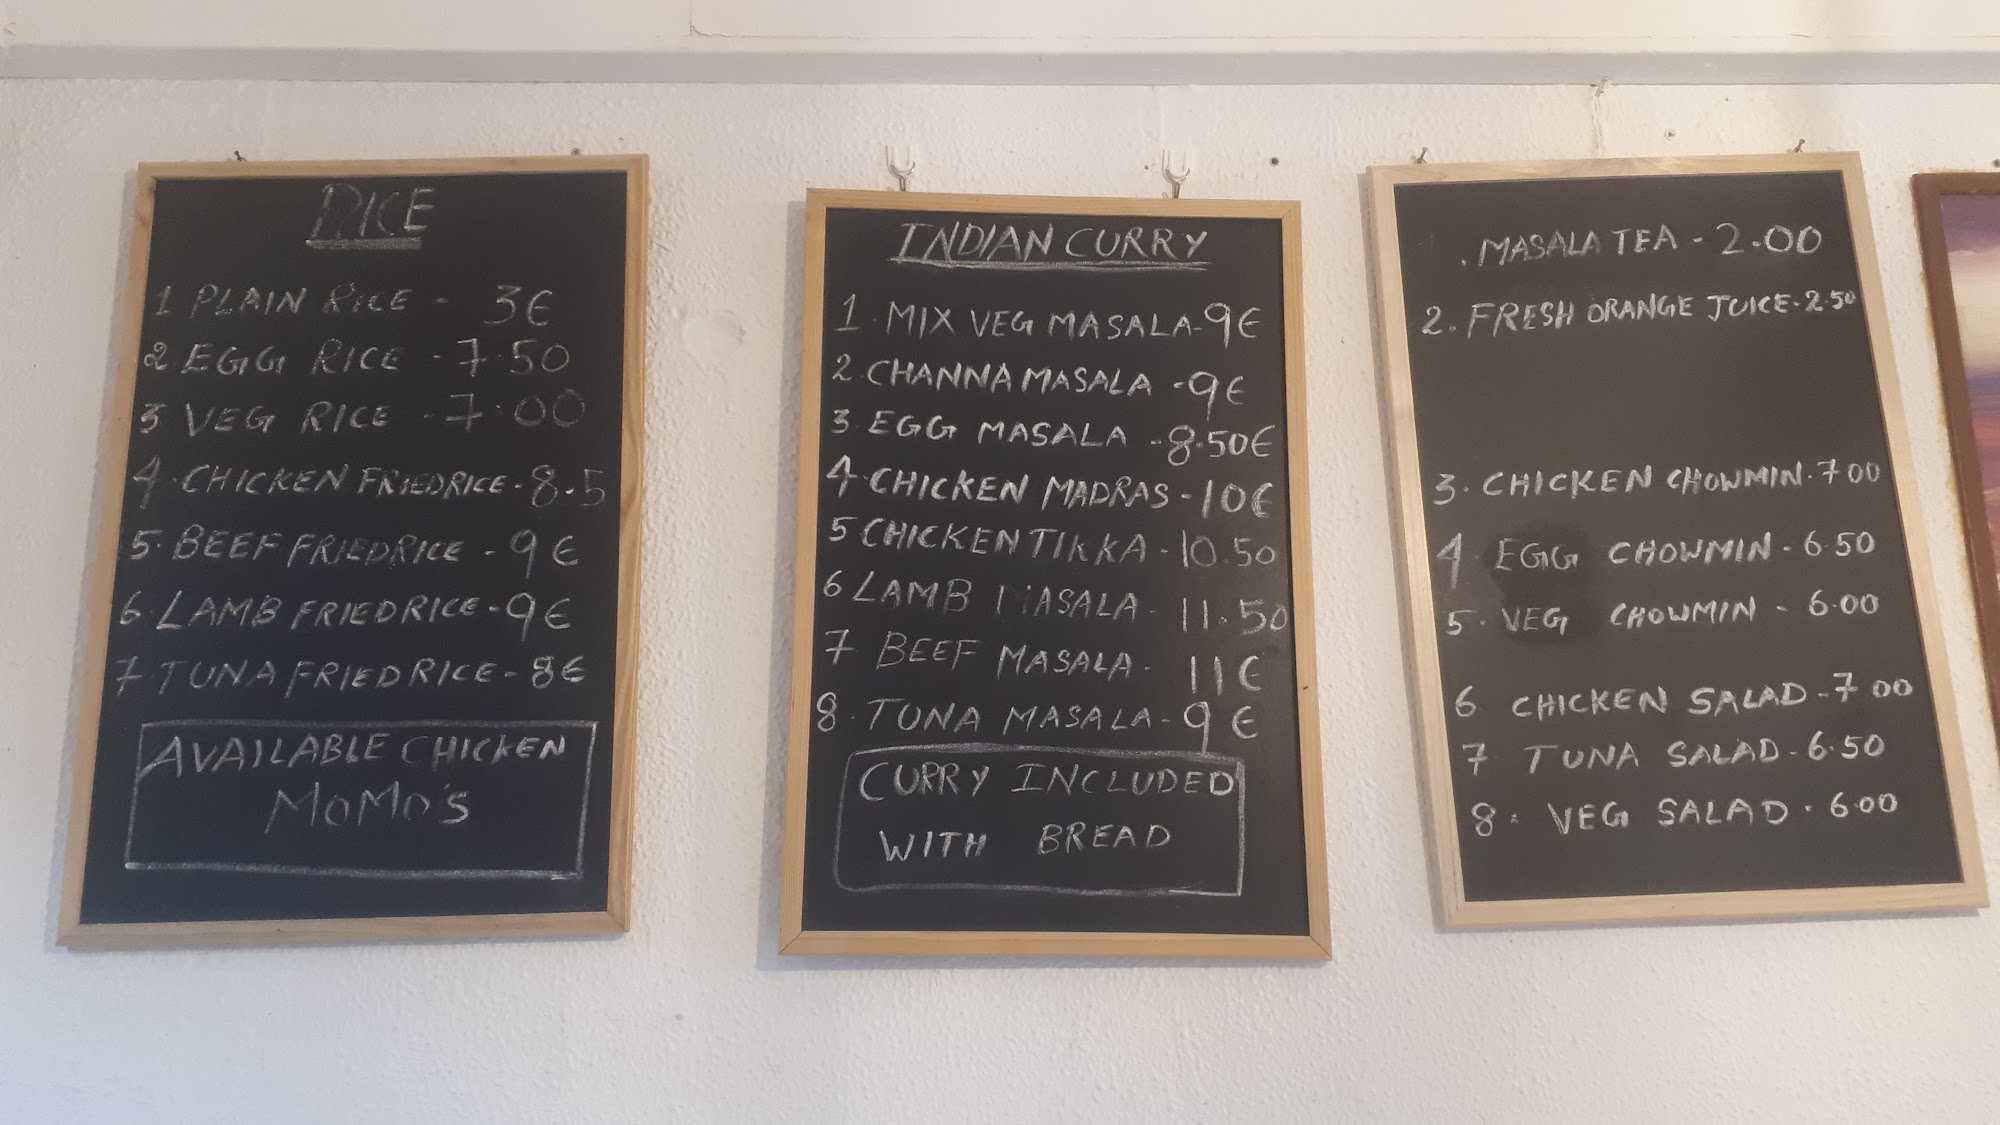 RICE
1 PLAIN RICE - 3€
2 EGG RICE - 7.50
3 VEG RICE - 7.00
4. CHICKEN FRIED RICE - 8.5
5. BEEF FRIED RICE - 9€
6. LAMB FRIED RICE - 9€
7 TUNA FRIED RICE - 8€
AVAILABLE CHICKEN
MOMO'S
INDIAN CURRY
1. MIX VEG MASALA - 9€
2 CHANNA MASALA - 9€
3. EGG MASALA - 8.50€
4. CHICKEN MADRAS - 10€
5 CHICKEN TIKKA - 10.50
6 LAMB MASALA - 11.50
7 BEEF MASALA - 11€
8. TUNA MASALA - 9€
CURRY INCLUDED
WITH BREAD
1. MASALA TEA - 2.00
2. FRESH ORANGE JUICE - 2.50
3. CHICKEN CHOWMIN. 7 00
4 EGG CHOWMIN - 6.50
5. VEG CHOWMIN - 6.00
6 CHICKEN SALAD - 7 00
7 TUNA SALAD - 6.50
8. VEG SALAD. 6.00